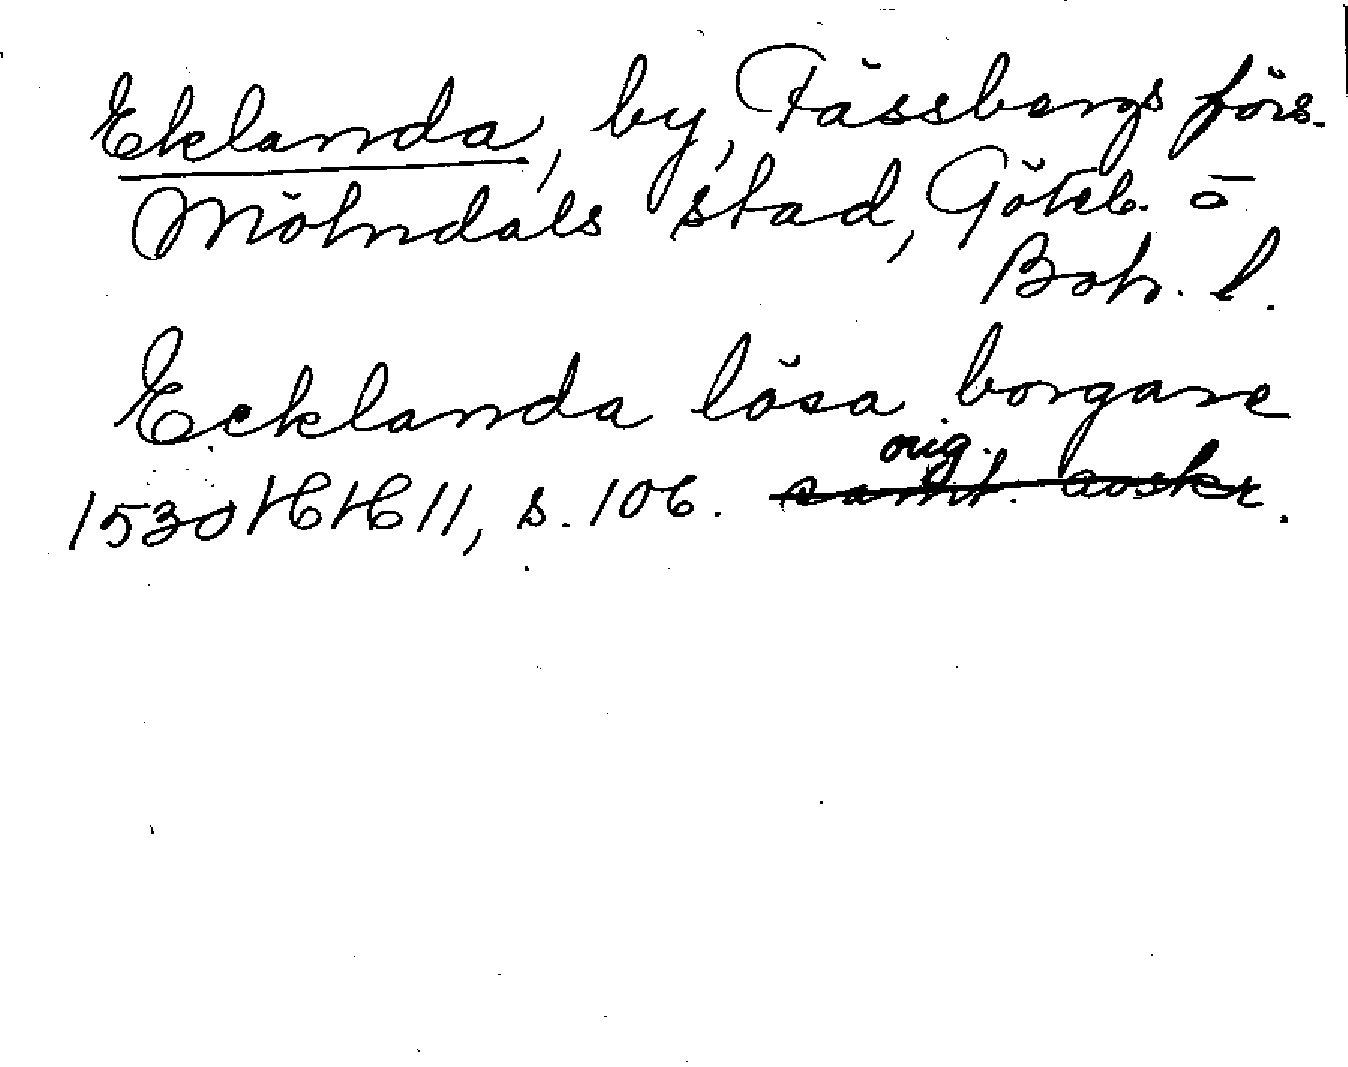 Eklanda, by, Fässbergs förs.
Mölndals stad, Göteb. o
Boh. l.
Ecklanda lösa borgare
orig.
1530 HH 11, s. 106. samt. avskr.